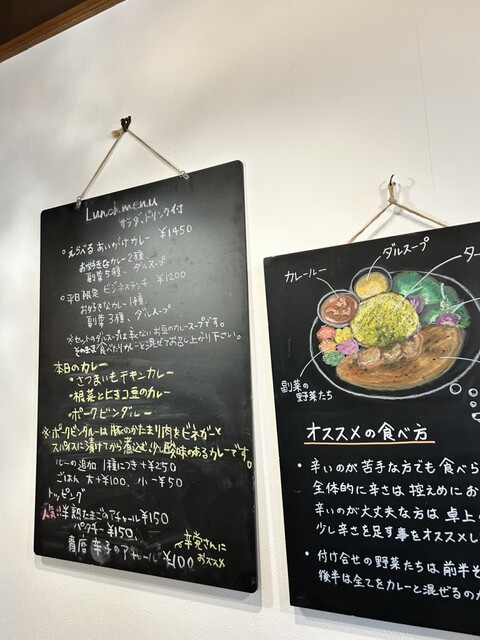 Lunch menu
サラダ、ドリンク付
えらべる あいがけカレー ¥1450
お好きなカレー2種
副菜5種、ダルスープ
平日限定 ビジネスランチ ¥1200
お好きなカレー1種
副菜3種、ダルスープ
※セットのダルスープは辛くないお豆のカレースープです。
そのまま食べたりカレーと混ぜてお召し上がり下さい。
本日のカレー
・さつまいもチキンカレー
・根菜とヒヨコ豆のカレー
・ポークビンダルー
※ポークビンダルーは豚のかたまり肉をビネガーと
スパイスに漬けてから煮込む、少し酸味のあるカレーです。
ルーの追加 1種につき+¥250
ごはん 大+¥100、小-¥50
トッピング
人気!!半熟たまごのアチャール ¥150
パクチー ¥150、
青唐辛子のアチャール ¥100
辛党さんに
おススメ
カレールー
ダルスープ
ター
副菜の
野菜たち
オススメの食べ方
・辛いのが苦手な方でも食べら
全体的に辛さは控えめにお
辛いのが大丈夫な方は卓上の
少し辛さを足す事をオススメし
・付け合せの野菜たちは前半そ
後半は全てをカレーと混ぜるのが